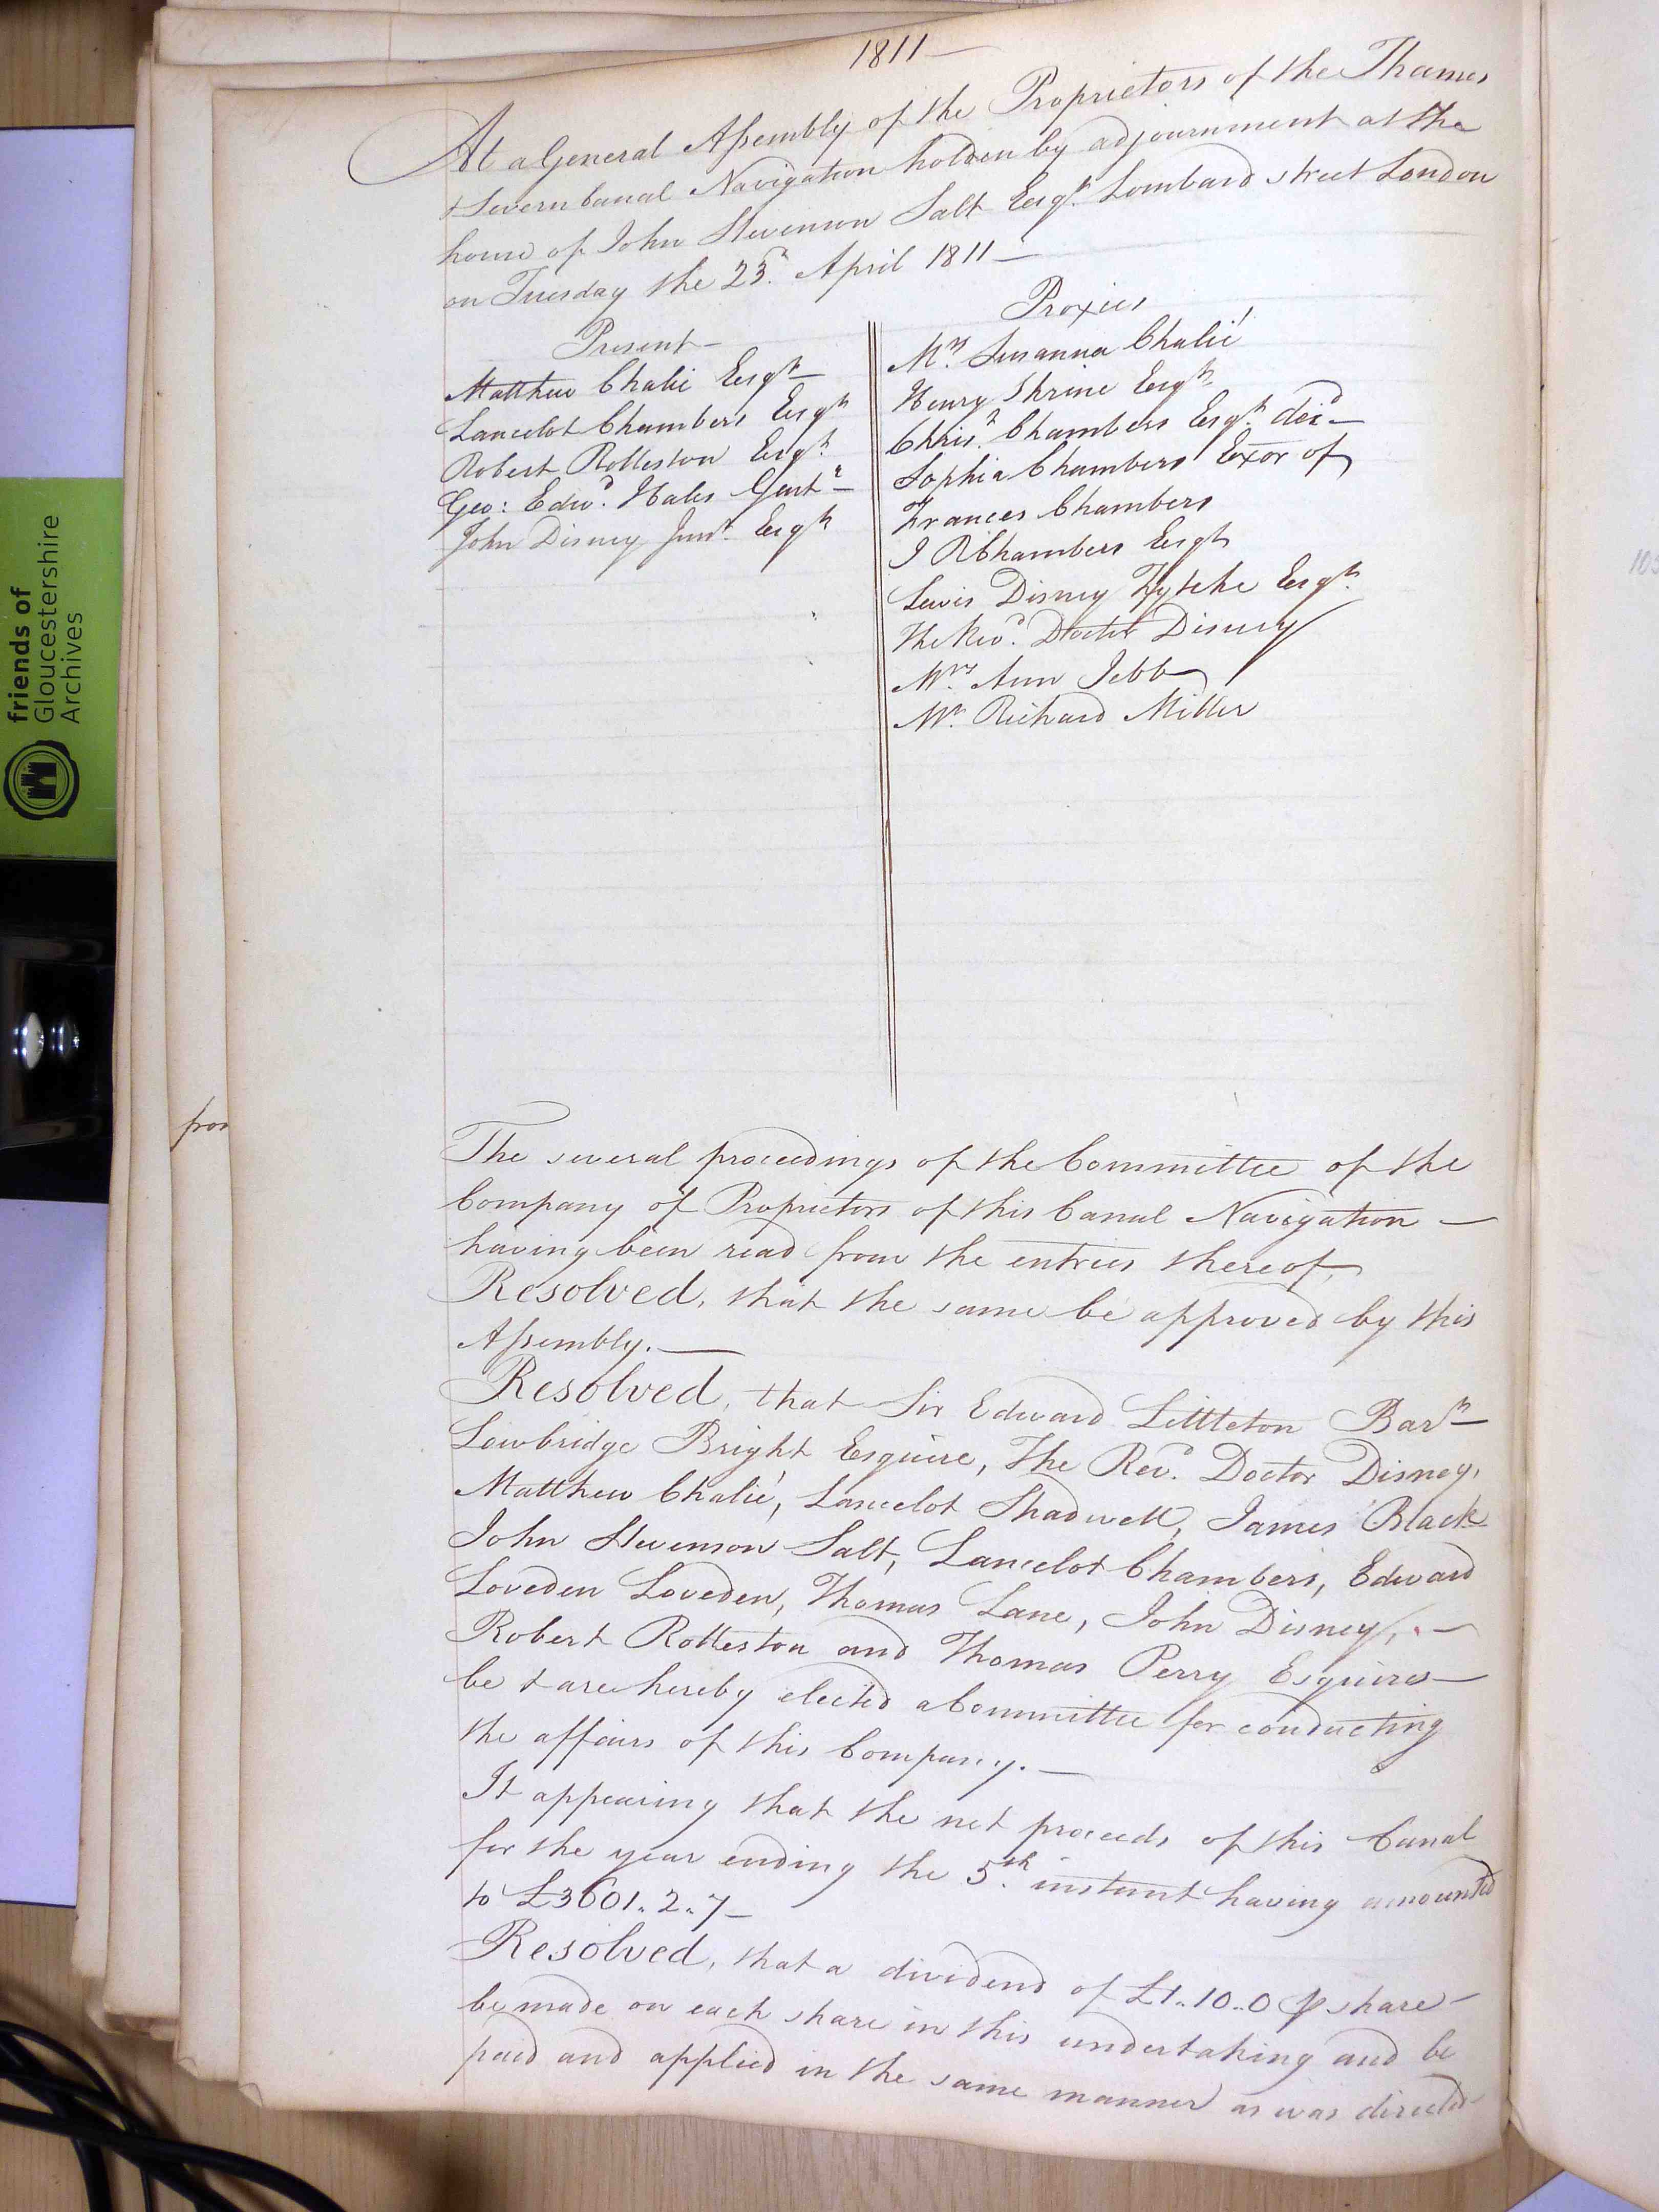 1811 —
At a General Assembly of the Proprietors of the Thames
& Severn Canal Navigation holden by adjournment at the
house of John Stevenson Salt Esqr. Lombard street London
on Tuesday the 23d. April 1811 —
Present —
Matthew Chalie Esqr —
Lancelot Chambers Esqr
Robert Rolleston Esqr.
Geo: Edwd. Hales Gentn —
John Disney Junr. Esqr
Proxies
Mrs. Susanna Chalié
Henry Shrine Esqr.
Chrisr. Chambers Esqr. decd —
Sophia Chambers Exor of
Frances Chambers
J R Chambers Esqr
Lewis Disney Fytche Esqr.
The Revd. Doctor Disney
Mrs. Ann Jebb
Mr. Richard Miller
The several proceedings of the Committee of the
Company of Proprietors of this Canal Navigation —
having been read from the entries thereof,
Resolved, that the same be approved by this
Assembly. —
Resolved, that Sir Edward Littleton Bart —
Lowbridge Bright Esquire, The Revd. Doctor Disney,
Matthew Chalié, Lancelot Shadwell, James Black
John Stevenson Salt, Lancelot Chambers, Edward
Loveden Loveden, Thomas Lane, John Disney, —
Robert Rolleston and Thomas Perry Esquires —
be & are hereby elected a Committee for conducting
the affairs of this Company. —
It appearing that the net proceeds of this Canal
for the year ending the 5th. instant having amounted
to £3601.. 2.. 7 —
Resolved, that a dividend of £1..10..0 ⅌ share —
be made on each share in this undertaking and be
paid and applied in the same manner as was directed
friends of
Gloucestershire
Archives
pro
103